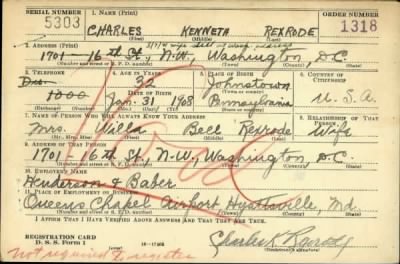 SERIAL NUMBER 1. NAME (Print) ORDER NUMBER
5303 CHARLES KENNETH REXRODE 1318
(First) (Middle) (Last)
2. ADDRESS (Print)
1701 - 16th St., N.W., Washington, D.C.
(Number and street or R. F. D. number) (Town) (County) (State)
3. TELEPHONE 4. AGE IN YEARS 5. PLACE OF BIRTH 6. COUNTRY OF CITIZENSHIP
32 Johnstown
DATE OF BIRTH (Town or county)
1000 Jan. 31 1908 Pennsylvania U.S.A.
(Exchange) (Number) (Mo.) (Day) (Yr.) (State or country)
7. NAME OF PERSON WHO WILL ALWAYS KNOW YOUR ADDRESS 8. RELATIONSHIP OF THAT PERSON
Mrs. Willa Bell Rexrode Wife
(Mr., Mrs., Miss) (First) (Middle) (Last)
9. ADDRESS OF THAT PERSON
1701 16th St., N.W., Washington, D.C.
(Number and street or R. F. D. number) (Town) (County) (State)
10. EMPLOYER'S NAME
Henderson & Baber
11. PLACE OF EMPLOYMENT OR BUSINESS
Queens Chapel Airport Hyattsville, Md.
(Number and street or R. F. D. number) (Town) (County) (State)
I AFFIRM THAT I HAVE VERIFIED ABOVE ANSWERS AND THAT THEY ARE TRUE.
REGISTRATION CARD
D. S. S. Form 1 16-17105 Charles K Rexrode
(Registrant's signature)
not required to register